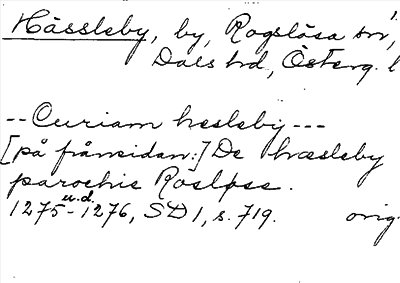 Hässleby, by, Rogslösa sn,
Dals hd, Österg. l
-- Curiam hesleby ---
[på främsidan:] De hæsleby
parochie Rosløse.
1275 u.d. - 1276, SD 1, s. 719. orig.